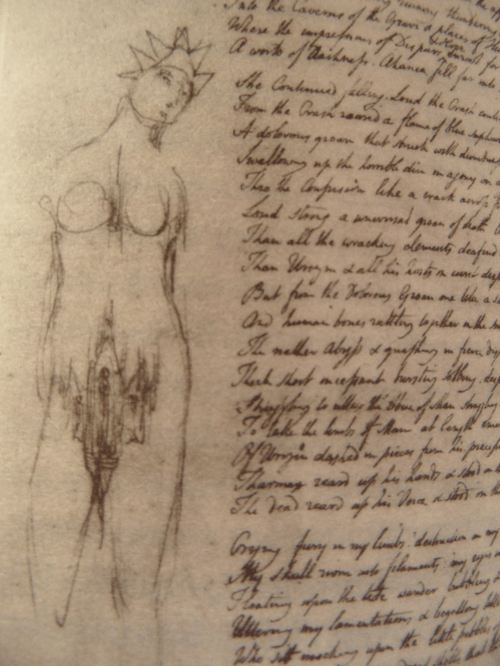 Into the Caverns of the Grave & places of
Where the impressions of Despair & Hope enroot for
A world of Darkness. Ahania fell far into
She Continued falling. Loud the Crash
From the Crash roared a flame of blue
A dolorous groan that struck with
Swallowing up the horrible din in agony on
Thro the Confusion like a crack across
Loud strong a universal groan of death
Than all the wracking elements deafend
Than Urizen & all his hosts in curst
But from the Dolorous Groan one like a
And human bones rattling together in the
The nether Abyss & gnasshing in fierce
Thick short incessant bursting sobbing.
Struggling to utter the voice of Man
To take the limbs of Man at length
Of Urizen dashed in pieces from his
Tharmas reard up his hands & stood on
The dead reard up his Voice & stood on the
Crying fury in my limbs. destruction in my
My skull riven into filaments. my eyes
Floating upon the tide wander bubbling
Uttering my lamentations & begetting
Who sit mocking upon the little pebbles